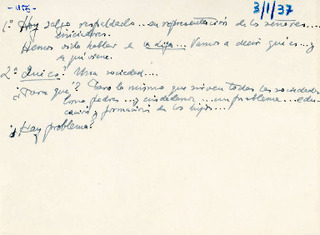 3/1/37
1º Hoy salgo respaldado... en representación de los señores....
sindicados.
Hemos oído hablar de la ... Vamos a decir qué es... y
a qué viene.
2º Qué es? Una sociedad....
¿Para qué? Para lo mismo que sirven todas las sociedades
como padres... y ciudadanos... un problema... edu-
cación y formación de los hijos...
¿Hay problema?